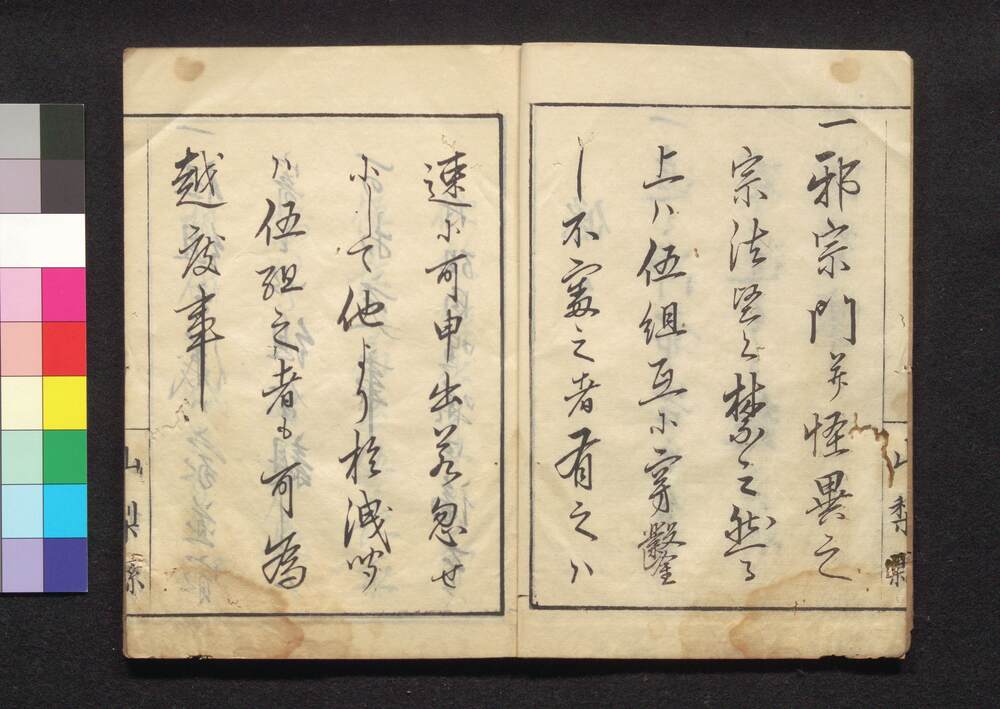 一邪宗門并怪異之
宗法堅く禁之然る
上ハ伍組互ニ穿鑿
し不審之者有之ハ
速ニ可申出若忽せ
ニして他より於洩聞
ハ伍組之者も可為
越度事
山梨縣
山梨縣